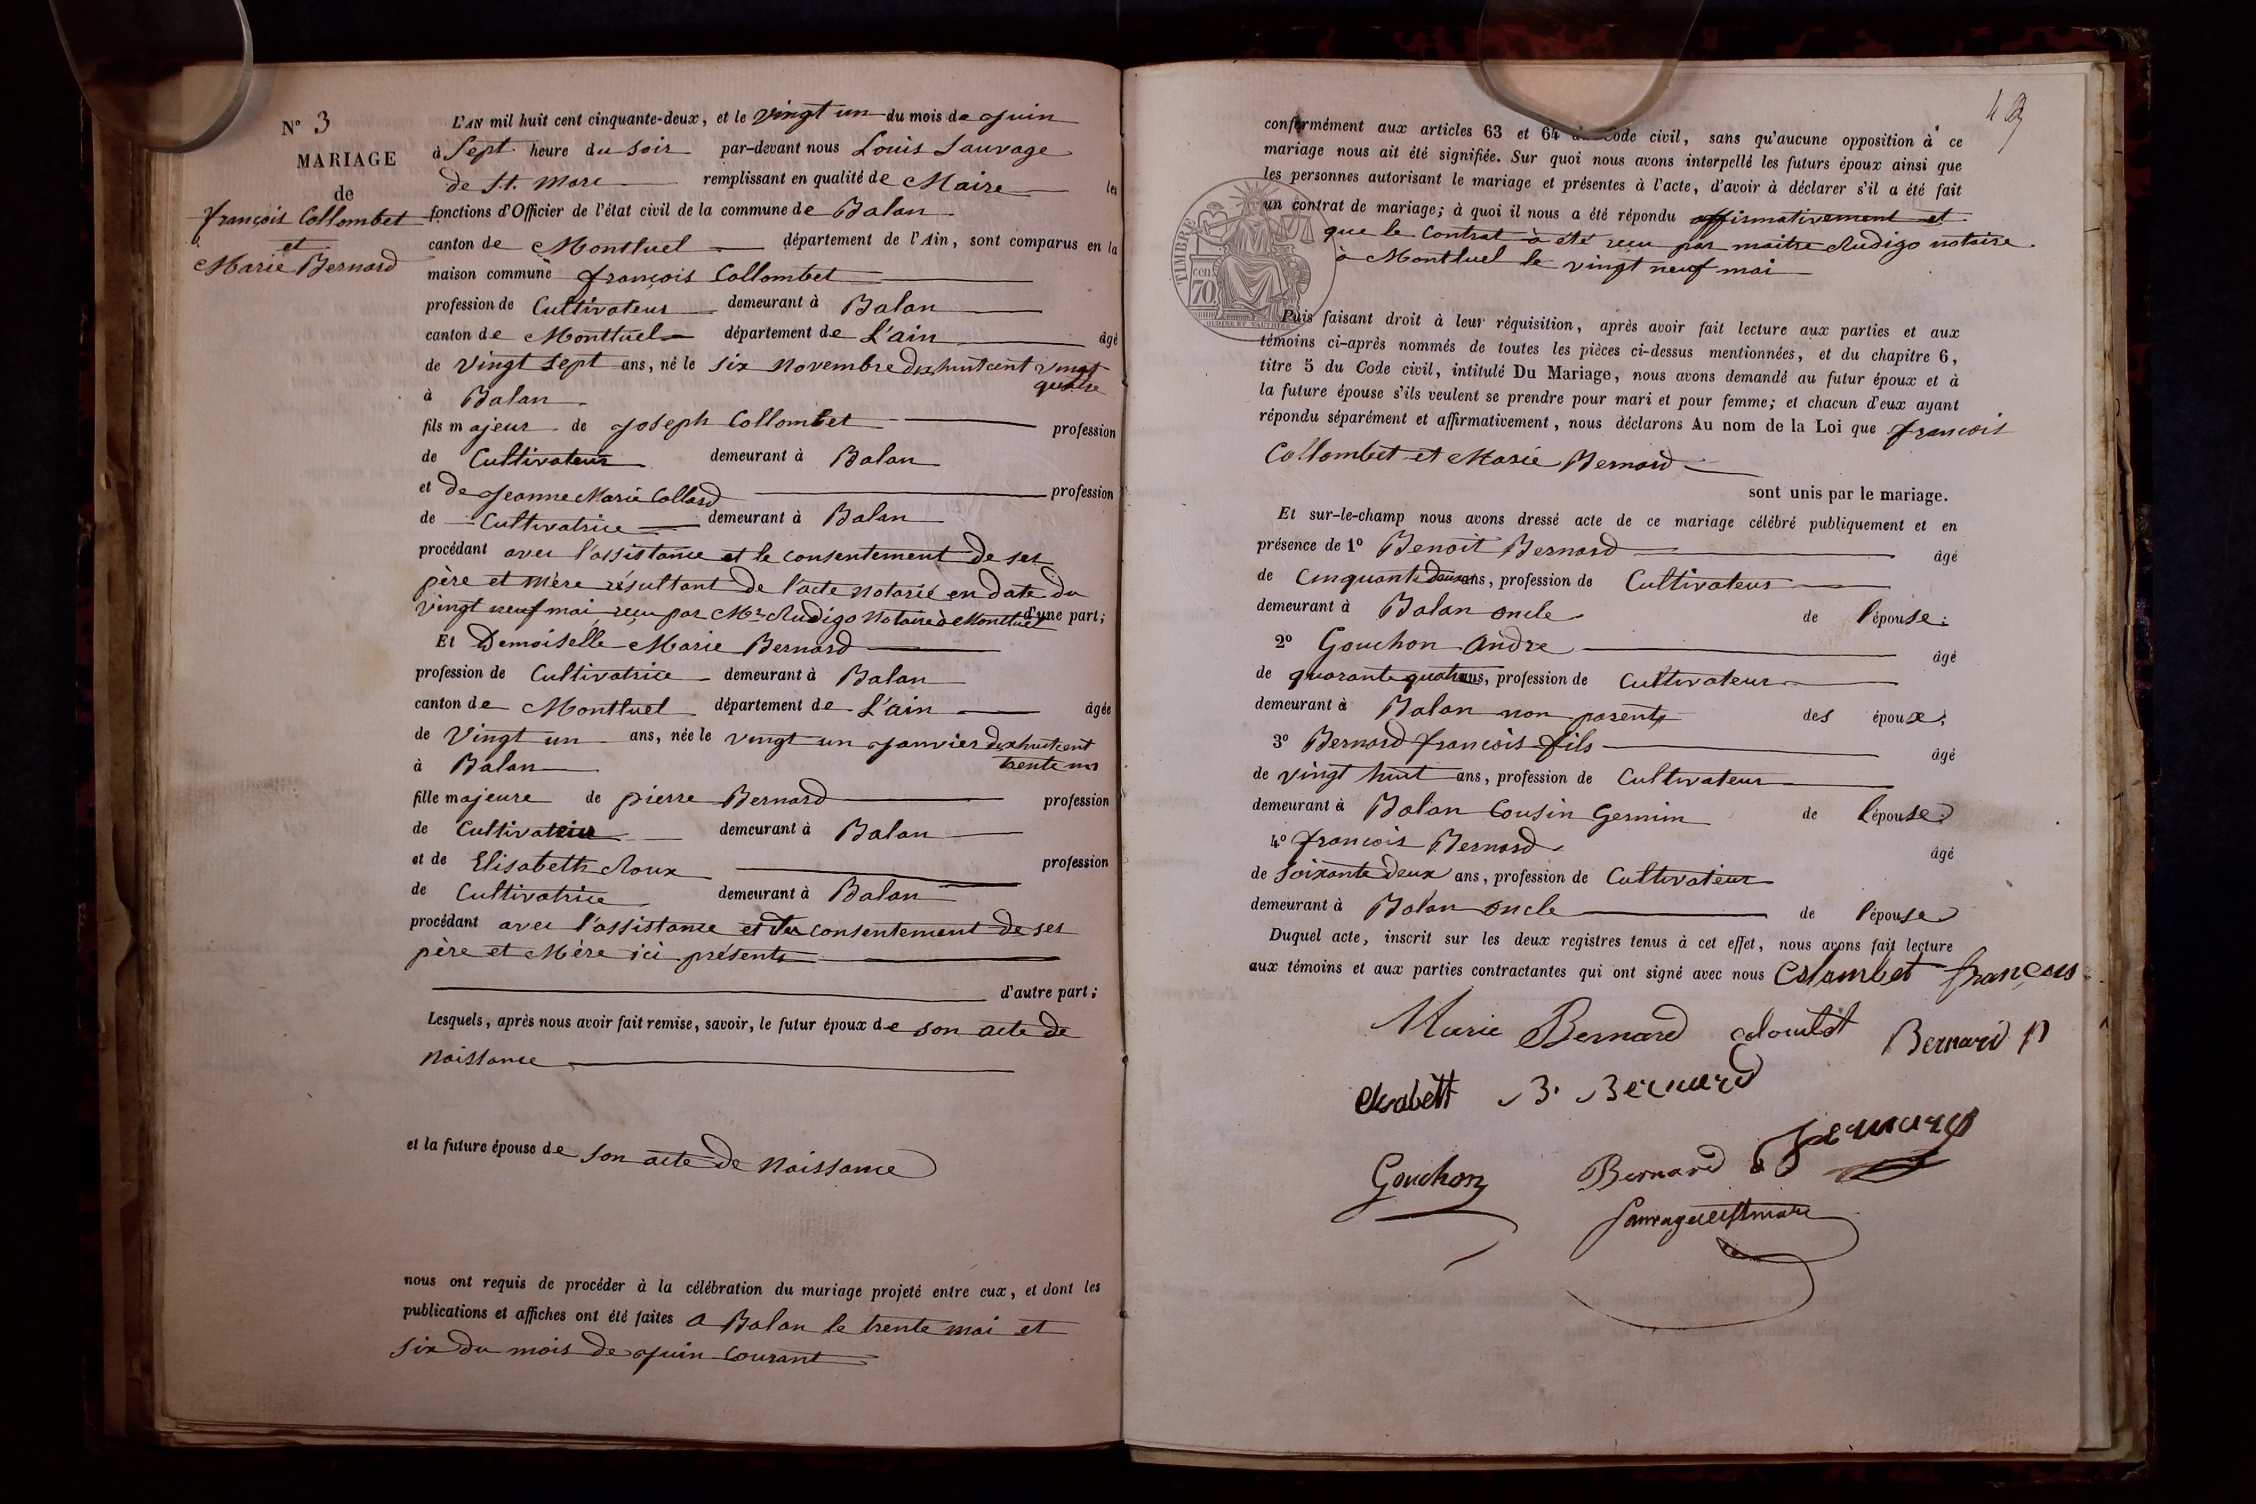 N° 3
MARIAGE
de
françois Collombet
et
Marie Bernard
L'AN mil huit cent cinquante-deux, et le vingt un du mois de juin
à Sept heure du soir par-devant nous Louis Sauvage
de St. Marc remplissant en qualité de Maire les
fonctions d'Officier de l'état civil de la commune de Balan
canton de Montluel département de l'Ain, sont comparus en la
maison commune françois Collombet
profession de Cultivateur demeurant à Balan
canton de Montluel département de L'ain âgé
de vingt sept ans, né le six novembre dixhuitcent vingt
quatre
à Balan
fils majeur de joseph Collombet profession
de Cultivateur demeurant à Balan
et de jeanne Marie Collard profession
de Cultivatrice demeurant à Balan
procédant avec l'assistance et le consentement de ses
père et mère résultant de l'acte notarié en date du
vingt neuf mai reçu par Mr Rudigo Notaire à Montluel d'une part;
Et Demoiselle Marie Bernard
profession de Cultivatrice demeurant à Balan
canton de Montluel département de L'ain âgée
de Vingt un ans, née le vingt un janvier dixhuitcent
trente un
à Balan
fille majeure de pierre Bernard profession
de Cultivateur demeurant à Balan
et de Elisabeth Roux profession
de Cultivatrice demeurant à Balan
procédant avec l'assistance et du consentement de ses
père et Mère ici présents
d'autre part;
Lesquels, après nous avoir fait remise, savoir, le futur époux de son acte de
Naissance
et la future épouse de son acte de Naissance
nous ont requis de procéder à la célébration du mariage projeté entre eux, et dont les
publications et affiches ont été faites a Balan le trente mai et
six du mois de juin courant
conformément aux articles 63 et 64 du Code civil, sans qu'aucune opposition à ce
mariage nous ait été signifiée. Sur quoi nous avons interpellé les futurs époux ainsi que
les personnes autorisant le mariage et présentes à l'acte, d'avoir à déclarer s'il a été fait
un contrat de mariage; à quoi il nous a été répondu affirmativement et
que le Contrat a été reçu par maitre Rudigo notaire
à Montluel le vingt neuf mai
TIMBRE
cen
70
Puis faisant droit à leur réquisition, après avoir fait lecture aux parties et aux
témoins ci-après nommés de toutes les pièces ci-dessus mentionnées, et du chapitre 6,
titre 5 du Code civil, intitulé Du Mariage, nous avons demandé au futur époux et à
la future épouse s'ils veulent se prendre pour mari et pour femme; et chacun d'eux ayant
répondu séparément et affirmativement, nous déclarons Au nom de la Loi que françois
Collombet et Marie Bernard
sont unis par le mariage.
Et sur-le-champ nous avons dressé acte de ce mariage célébré publiquement et en
présence de 1° Benoit Bernard âgé
de Cinquante deux ans, profession de Cultivateur
demeurant à Balan oncle de l'épouse;
2° Gouchon andre âgé
de quarante quatre ans, profession de Cultivateur
demeurant à Balan non parents des époux;
3° Bernard françois fils âgé
de vingt huit ans, profession de Cultivateur
demeurant à Balan Cousin Germin de l'épouse;
4° françois Bernard âgé
de soixante deux ans, profession de Cultivateur
demeurant à Balan oncle de l'épouse
Duquel acte, inscrit sur les deux registres tenus à cet effet, nous avons fait lecture
aux témoins et aux parties contractantes qui ont signé avec nous Colombet françois
Marie Bernard Bernard p
B. Bernard
Gouchon Bernard
Sauvage de St marc